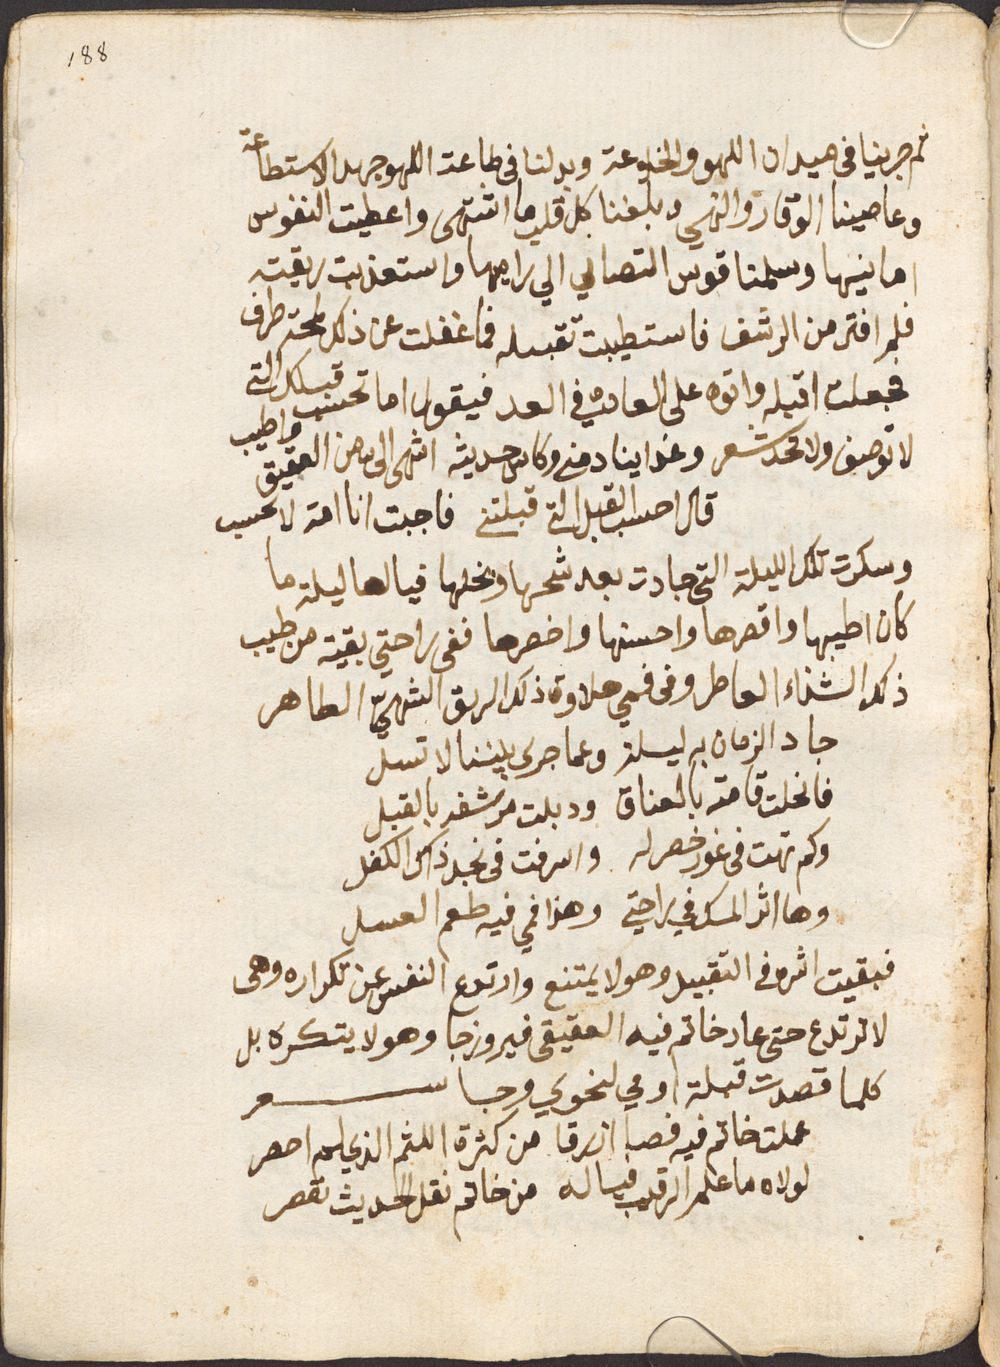 188
ثم جرينا فى ميدان اللهو والخلوعة وبدلنا فى طاعة اللهو جهد الاستطاعة
وعاصينا الوقار والنهى وبلغنا كل قلب ما اشتهى واعطيت النفوس
امانيها وسلمنا قوس التصابي الي راميها واستعذبت ريقته
فلم افتر من الرشف فاستطيبت تقبيله فما غفلت عن ذلك لمحة طرف
فجعلت اقبله واتوه على العادة في العد فيقول اما تحسب قبلك التى
لا توصف ولا تحد شعر وغدا ينادمنى وكاس حديثه اشهى الى من العقيق واطيب
قال احسب القبل التى قبلتنى فاجبت انا امة لا تحسب
وسكرت تلك الليلة التى جادت بعد شحها وبخلها فيالها ليلة ما
كان اطيبها واقصرها واحسنها واخصرها ففى راحتي بقية من طيب
ذلك الشذاء العاطر وفى فمي حلاوة ذلك الريق الشهيّ الطاهر
جاد الزمان به ليلة وعما جرى بيننا لا تسل
فانحلت قامته بالعناق ودبلت مرشفه بالقبل
وكم تهت فى غور خصر له واشرفت فى نجد ذاك الكفل
وها اثر المسك في راحتي وهذا فمي فيه طعم العسل
فبقيت اشره فى التقبيل وهو لا يمتنع وارتدع النفس عن تكراره وهى
لا ترتدع حتى عاد خاتم فيه العقيقى فيروزجا وهو لا يتكره بل
كلما قصدت قبلة اومي لنحوي وجا شعر
عملت خاتم فيه فصا ازرقا من كثرة اللثم الذي لم احصر
لولاه ما علم الرقيب فياله من خاتم نقل الحديث تقصر